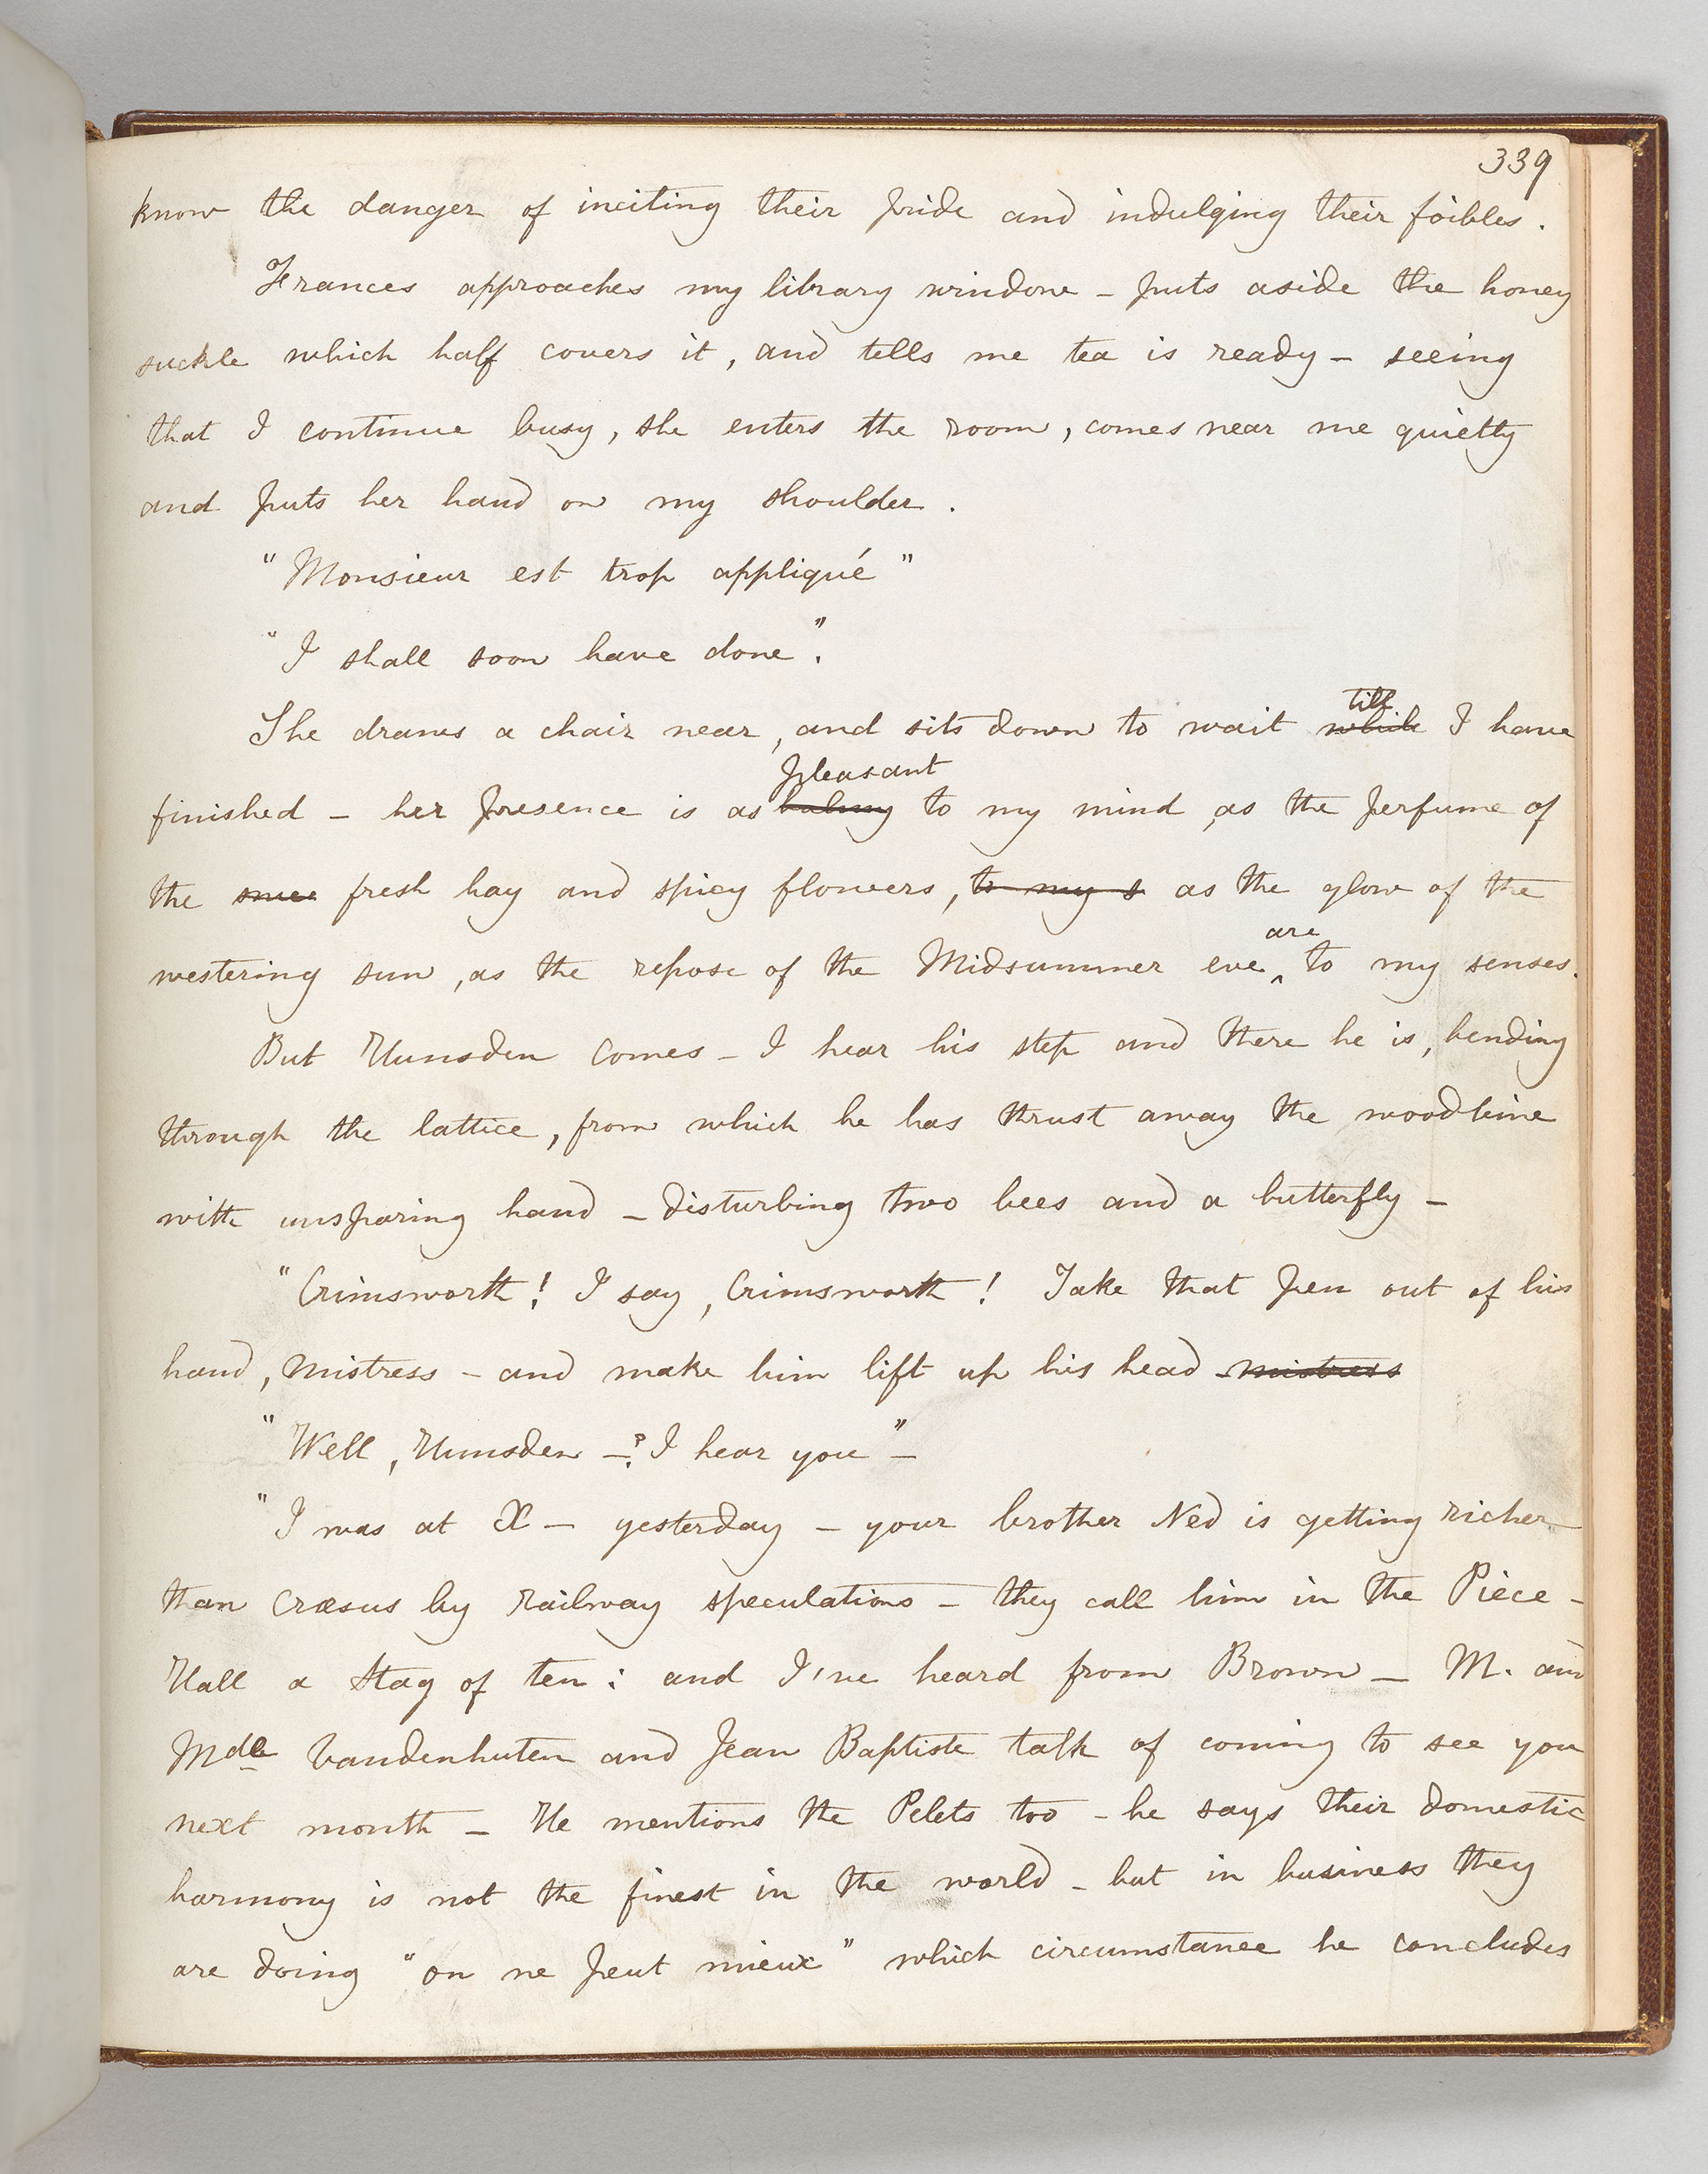 339
know the danger of inciting their pride and indulging their foibles.
Frances approaches my library window – puts aside the honey
suckle which half covers it, and tells me tea is ready – seeing
that I continue busy, she enters the room, comes near me quietly
and puts her hand on my shoulder.
"Monsieur est trop appliqué"
"I shall soon have done".
till
She draws a chair near, and sits down to wait while I have
pleasant
finished – her presence is as balmy to my mind, as the perfume of
the swee fresh hay and spicy flowers, to my s as the glow of the
are
westering sun, as the repose of the Midsummer eve ^ to my senses.
But Hunsden comes – I hear his step and there he is, bending
through the lattice, from which he has thrust away the woodbine
with unsparing hand – disturbing two bees and a butterfly –
"Crimsworth! I say, Crimsworth! Take that pen out of his
hand, mistress – and make him lift up his head – mistress
"Well, Hunsden –? I hear you" –
"I was at X – yesterday – your brother Ned is getting richer
than Crœsus by railway speculations – they call him in the Piece-
Hall a Stag of ten: and I've heard from Brown – M. and
Mde Vandenhuten and Jean Baptiste talk of coming to see you
next month – He mentions the Pelets too – he says their domestic
harmony is not the finest in the world – but in business they
are doing "on ne peut mieux" which circumstance he concludes